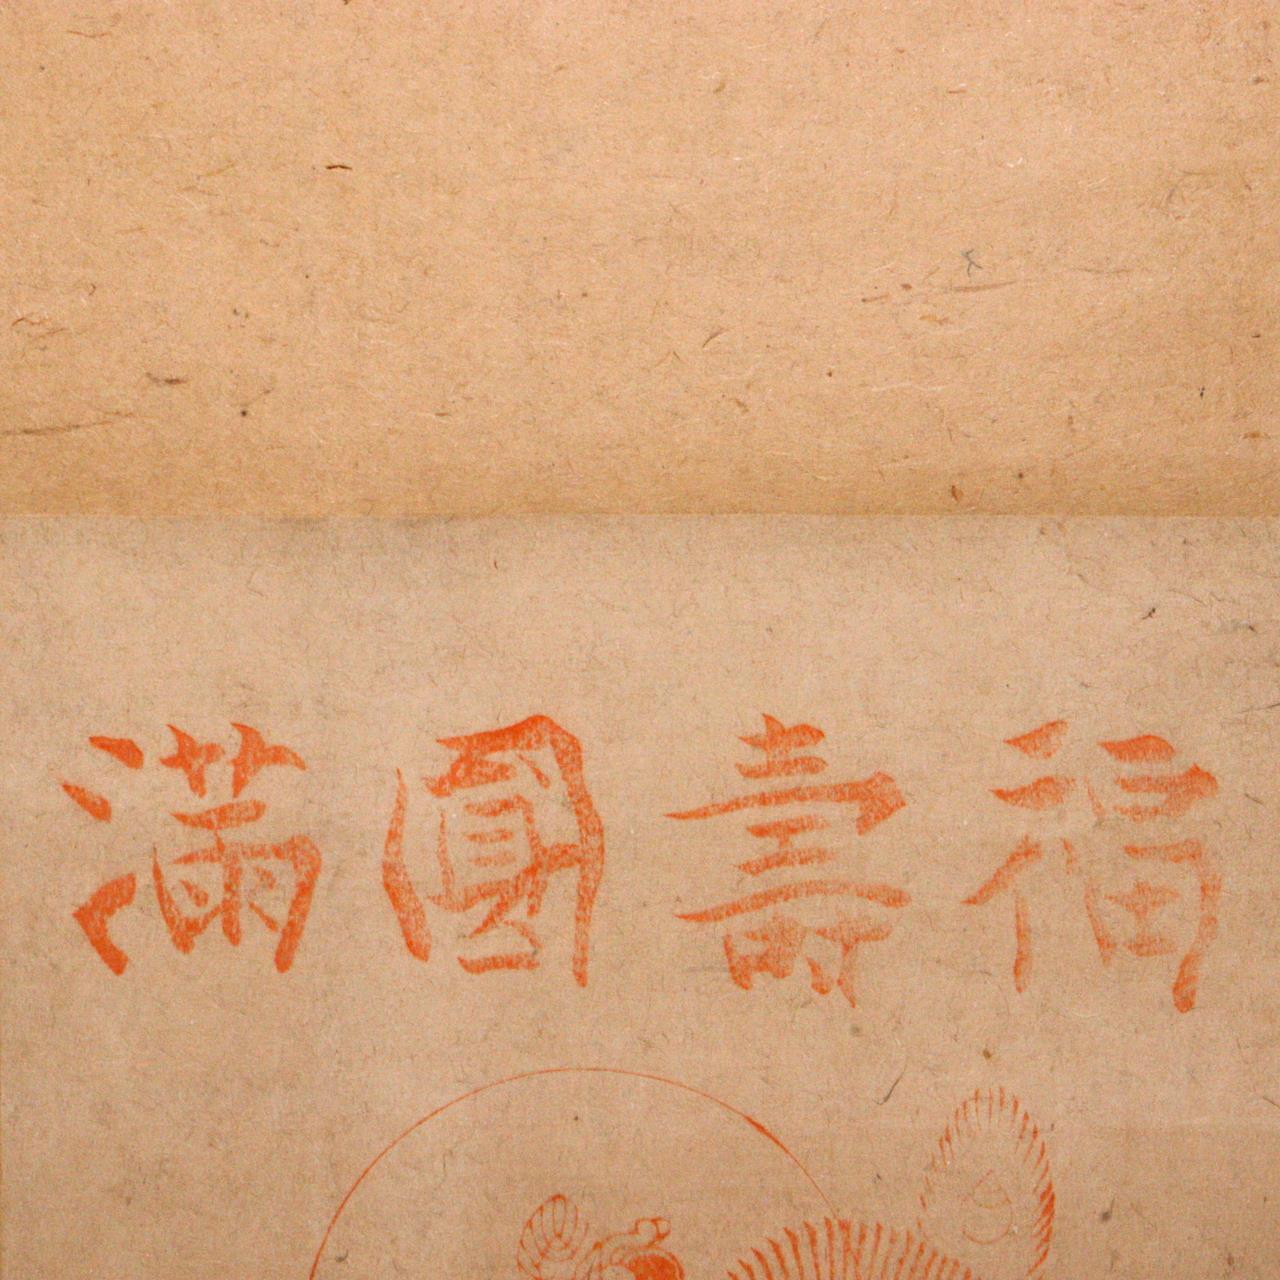 福壽圓滿